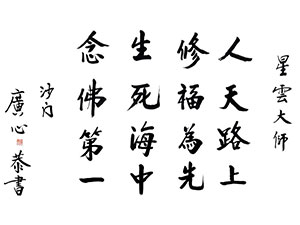 星雲大師
人天路上
修福為先
生死海中
念佛第一
沙門
廣心恭書